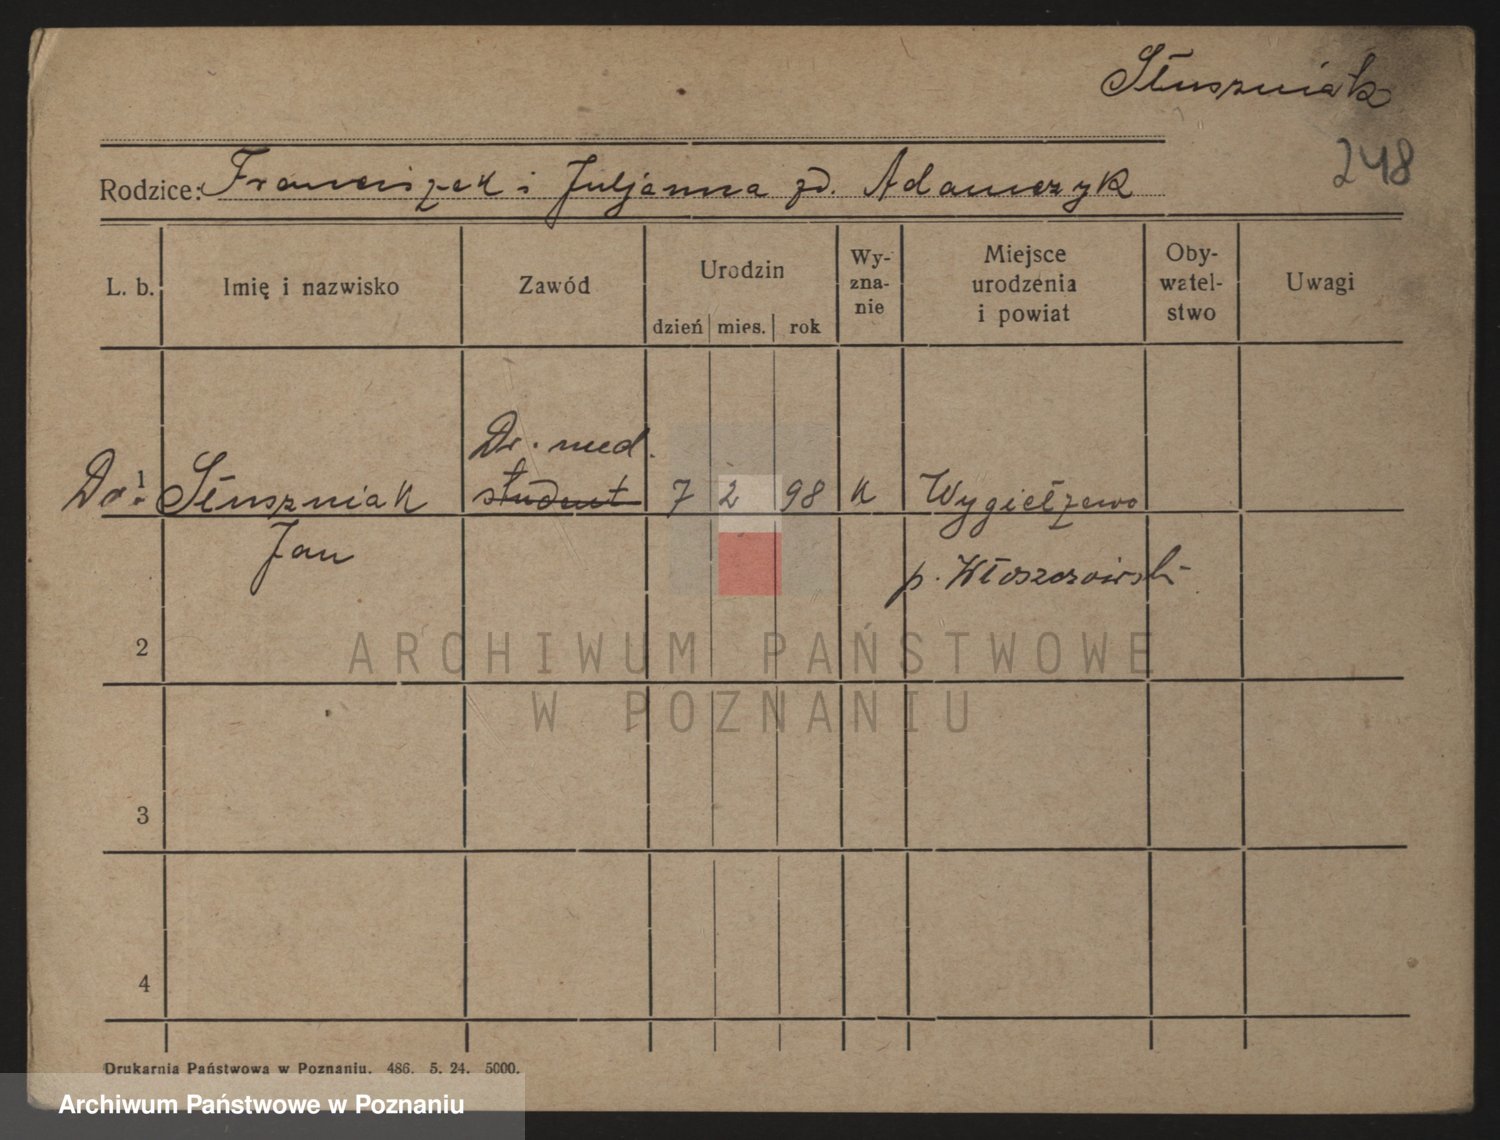 Słuszniak
248
Rodzice: Franciszek i Juljanna zd. Adamczyk
L. b. Imię i nazwisko Zawód Urodzin dzień mies. rok Wy-zna-nie Miejsce urodzenia i powiat Oby-watel-stwo Uwagi
Dr. med.
Dr. 1 Słuszniak student 7 2 98 K Wygiełzewo
Jan p. Włoszczowski
2
ARCHIWUM PAŃSTWOWE
W POZNANIU
3
4
Drukarnia Państwowa w Poznaniu. 486. 5. 24. 5000.
Archiwum Państwowe w Poznaniu